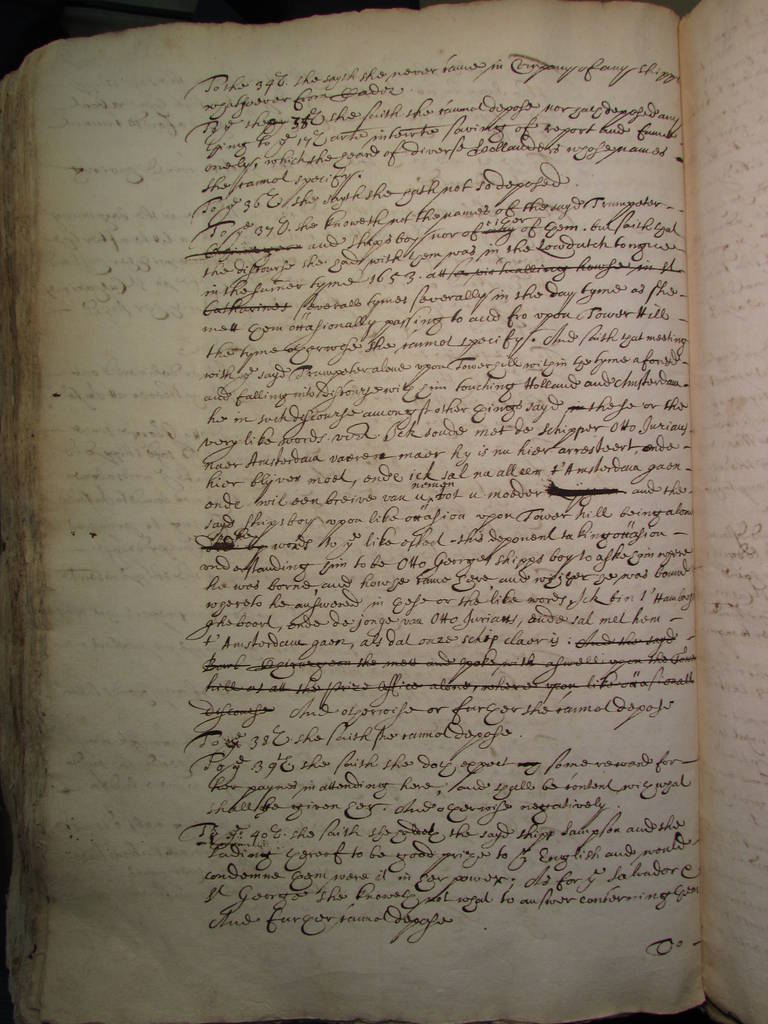 To the 34th. she sayth she never came in Company of any shipps
whatsoever from Cadiz.
To ye 35th she saith she cannot depose nor hath deposed any
thing to ye 17th arte interrte saving of report and fame
onely, which she heard of diverse Hollanders whose names
she cannot specify.
To ye 36th she sayth she hath not so deposed.
To ye 37th. she knoweth not the names of the sayd Trumpeter
and Shipps boy nor of either of them. but saith that
the discourse she had with them was in the Lowdutch tongue
in the sumer tyme 1653. att a victualling howse in St
Catharines severall tymes severally in the day tyme as she
mett them occasionally passing to and fro upon Tower Hill
the tyme otherwise she cannot specify. And saith that meeting
with ye sayd Trumpeter alone upon Towerhill within the tyme aforesd
and falling into discourse with him touching Holland and Amsterdam
he in such discourse amongst other things sayd in these or the
very like words. vizt Ick soude met de schipper Otto Jurians
naer Amsterdam vaeren maer hy is nu hier arresteert, ende
hier blyven moet, ende ick sal nu alleen t'Amsterdam gaen
ende wil een breive van u nemen tot u moeder and the
sayd shipsboy upon like occasion upon Tower hill being alone
words to ye like effect she deponent taking occasion
understanding him to be Otto Georges shipps boy to aske him where
he was borne, and howe he came here and whither he was bound
whereto he answered in these or the like words, Ick bin t'Hamborg
gheboort, ende de jonge van Otto Jurians, ende sal met hem
t'Amsterdam gaen, als dat onze schip claer is. And the sayd
she mett and spoke with aswell upon the Tower
hill as att the Prize Office alone, where upon like occasionall
discourse And otherwise or further she cannot depose
To ye 38th she saith she cannot depose.
To ye 39th she saith she doth expect some reward for
her paynes in attending here, and shall be content with what
shall be given her. And otherwise negatively.
To ye 40th. she saith she the sayd shipp Sampson and the
lading thereof to be good prize to ye English and would
condemne them were it in her power; As for ye Salvador &
St George she knoweth not what to answer concerning them
And further cannot depose
To